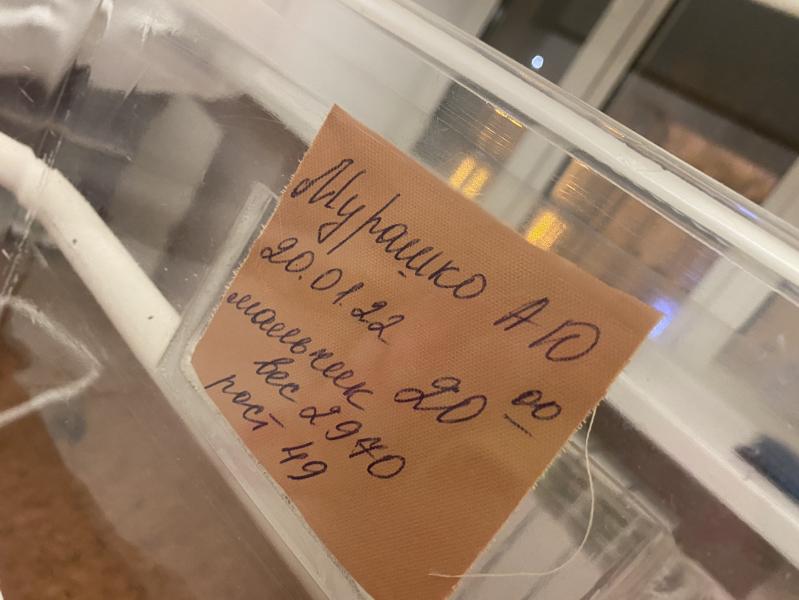 Мурашко А Ю
20.01.22
мальчик 20 00
вес 2940
рост 49